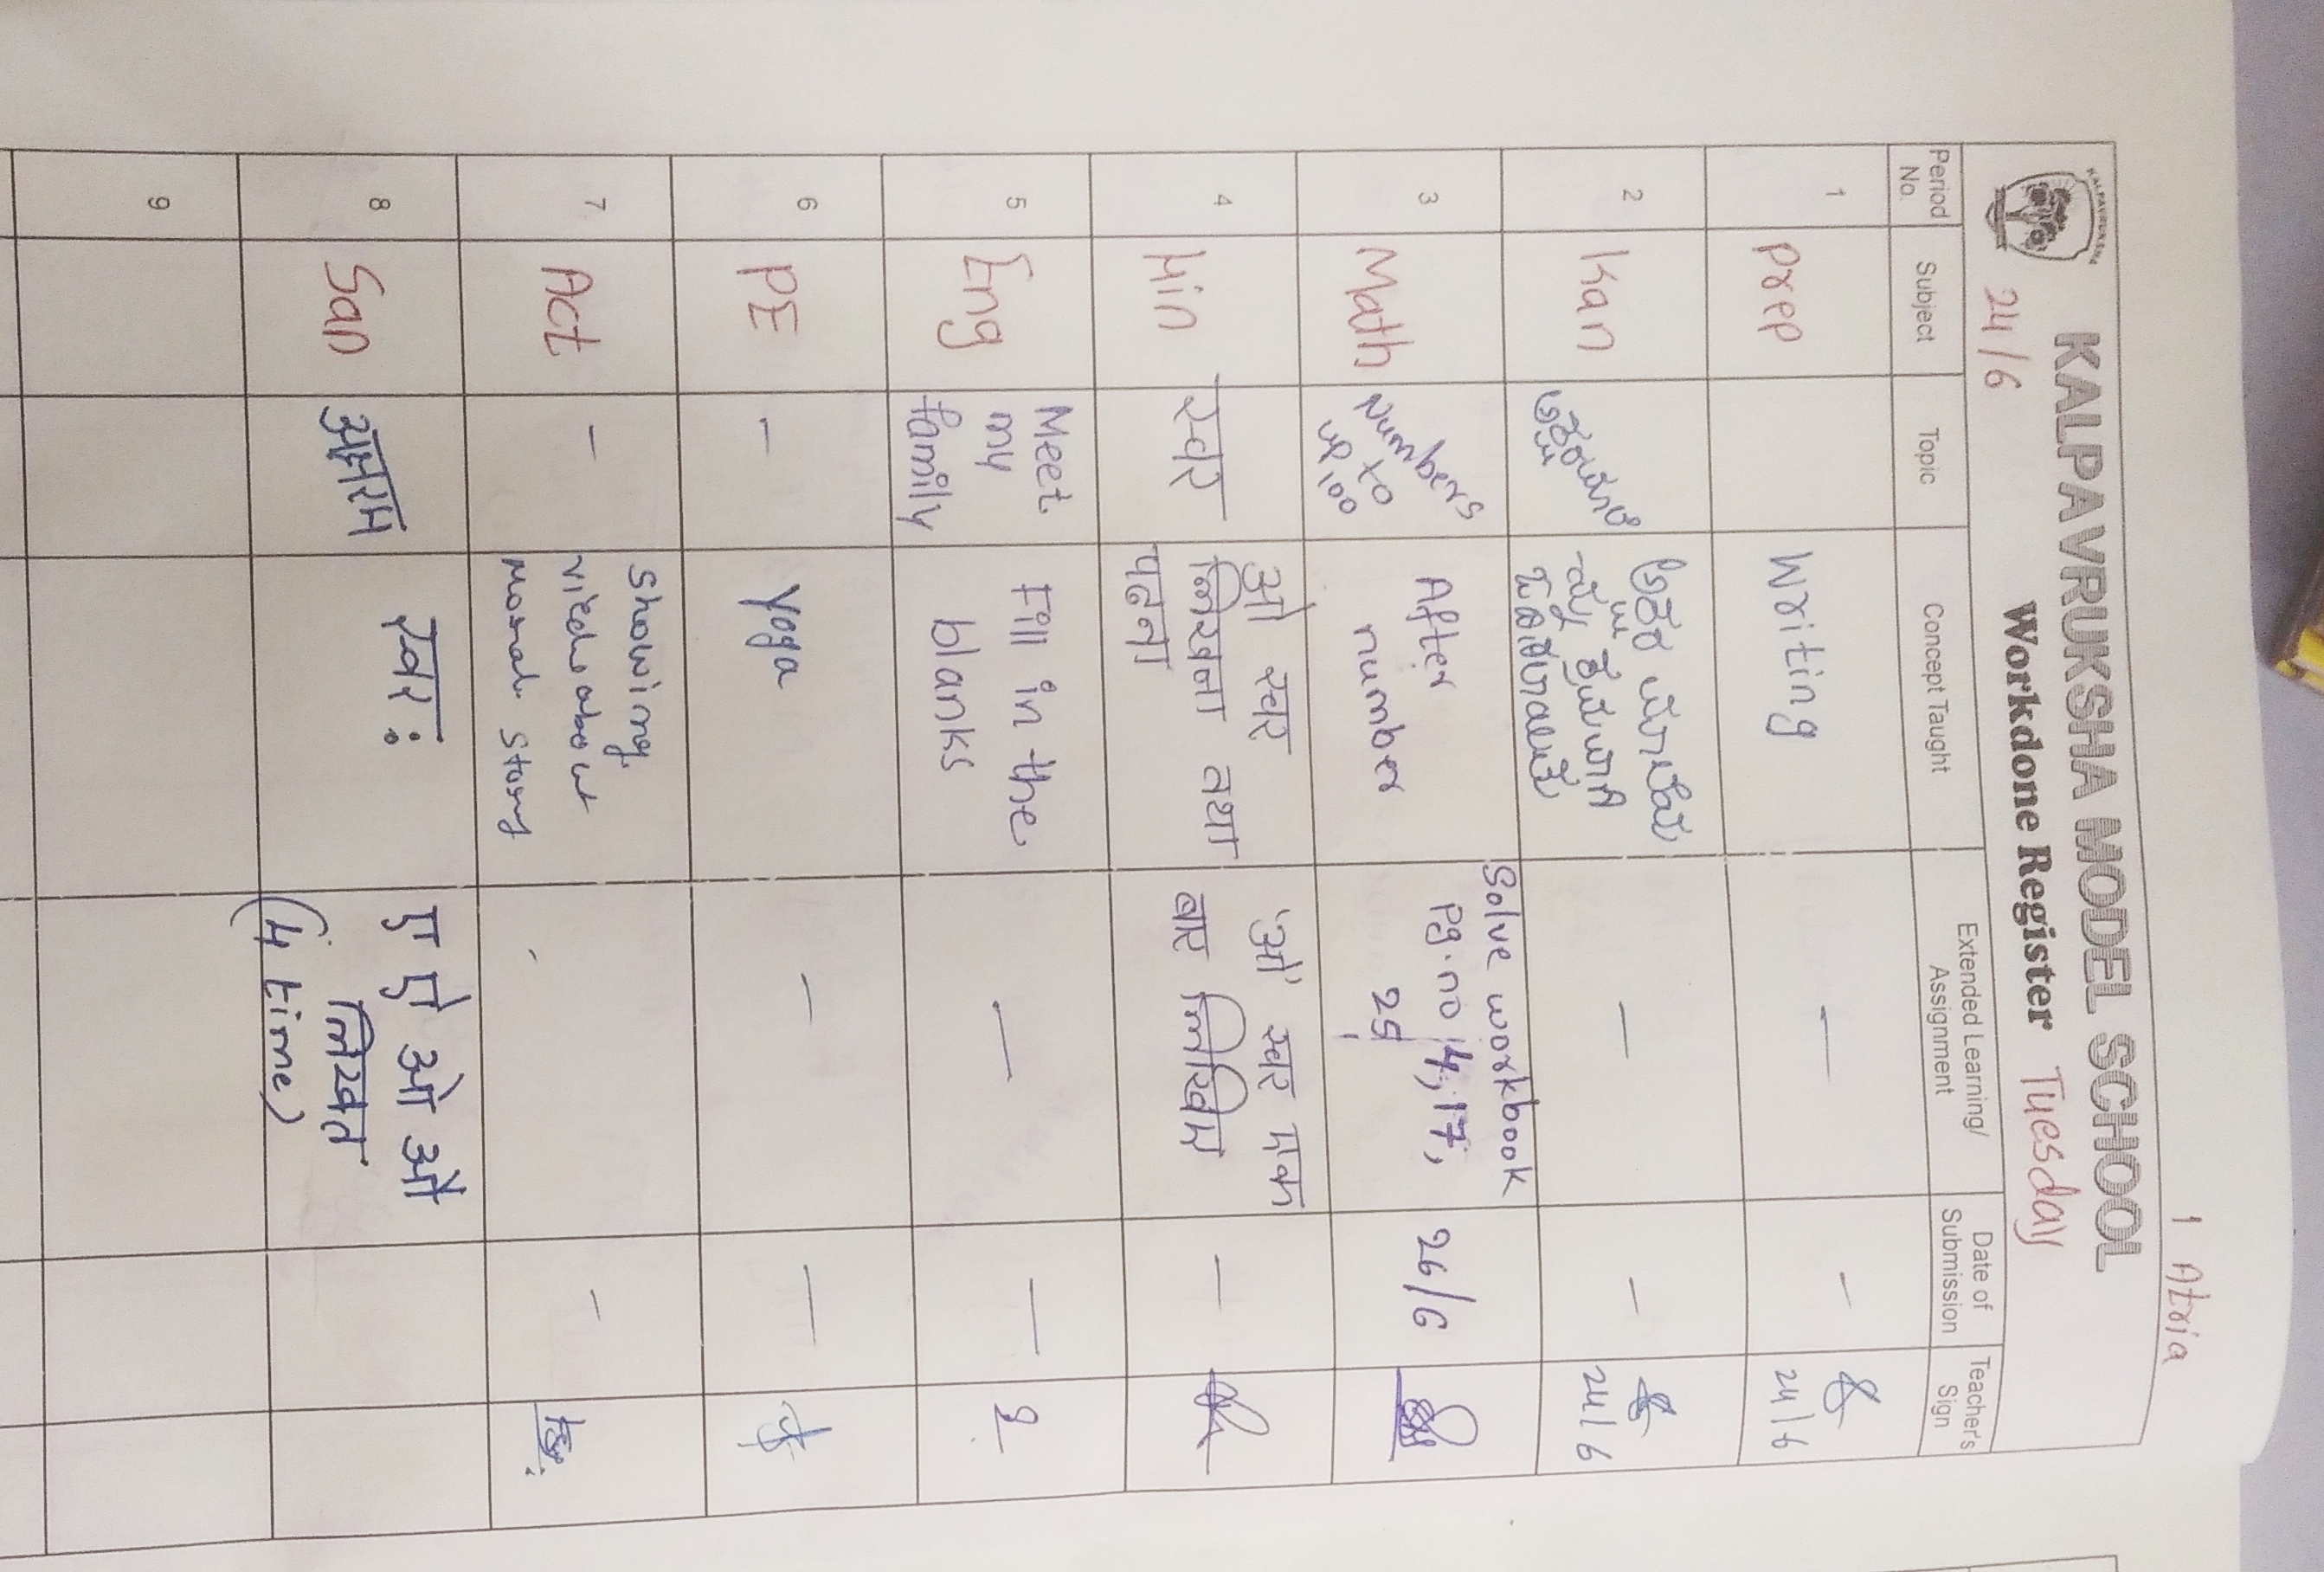 1 Atria
KALPAVRUKSHA
KALPAVRUKSHA MODEL SCHOOL
24/6 Workdone Register Tuesday
Period No. Subject Topic Concept Taught Extended Learning/ Assignment Date of Submission Teacher's Sign
1 Prep Writing — — 24/6
2 Kan — — 24/6
3 Math Numbers up to 100 After number Solve workbook Pg.no 14, 17, 25 26/6
4 Hin स्वर ओ स्वर लिखना तथा पढना 'ओ' स्वर बार लिखिए —
5 Eng Meet my family Fill in the blanks — —
6 PE — Yoga — —
7 Act — Showing video about moral story —
8 San स्वर: ए ऐ ओ औ लिखत (4 time)
9